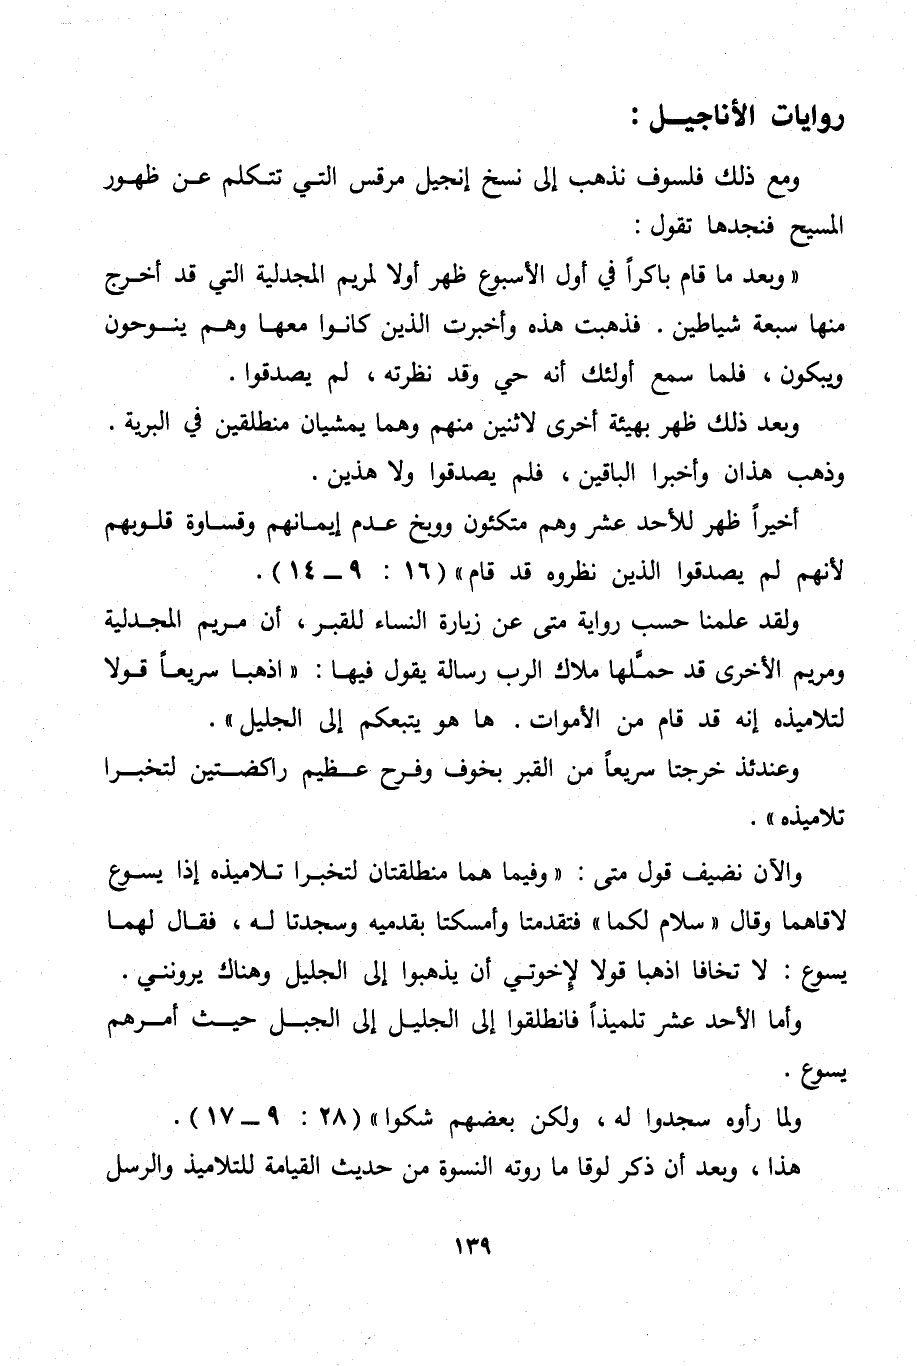 روايات الأناجيـــل :
ومع ذلك فلسوف نذهب إلى نسخ إنجيل مرقس التي تتكلم عن ظهور
المسيح فنجدها تقول :
« وبعد ما قام باكراً في أول الأسبوع ظهر أولا لمريم المجدلية التي قد أخرج
منها سبعة شياطين . فذهبت هذه وأخبرت الذين كانوا معها وهم ينوحون
ويبكون ، فلما سمع أولئك أنه حي وقد نظرته ، لم يصدقوا .
وبعد ذلك ظهر بهيئة أخرى لاثنين منهم وهما يمشيان منطلقين في البرية .
وذهب هذان وأخبرا الباقين ، فلم يصدقوا ولا هذين .
أخيراً ظهر للأحد عشر وهم متكئون ووبخ عدم إيمانهم وقساوة قلوبهم
لأنهم لم يصدقوا الذين نظروه قد قام » ( ١٦ : ٩ – ١٤ ) .
ولقد علمنا حسب رواية متى عن زيارة النساء للقبر ، أن مريم المجدلية
ومريم الأخرى قد حمَّلها ملاك الرب رسالة يقول فيها : « اذهبا سريعاً قولا
لتلاميذه إنه قد قام من الأموات . ها هو يتبعكم إلى الجليل » .
وعندئذ خرجتا سريعاً من القبر بخوف وفرح عظيم راكضتين لتخبرا
تلاميذه » .
والآن نضيف قول متى : « وفيما هما منطلقتان لتخبرا تلاميذه إذا يسوع
لاقاهما وقال « سلام لكما » فتقدمتا وأمسكتا بقدميه وسجدتا له ، فقال لهما
يسوع : لا تخافا اذهبا قولا لإخوتي أن يذهبوا إلى الجليل وهناك يرونني .
وأما الأحد عشر تلميذاً فانطلقوا إلى الجليل إلى الجبل حيث أمرهم
يسوع .
ولما رأوه سجدوا له ، ولكن بعضهم شكوا » ( ٢٨ : ٩ – ١٧ ) .
هذا ، وبعد أن ذكر لوقا ما روته النسوة من حديث القيامة للتلاميذ والرسل
١٣٩